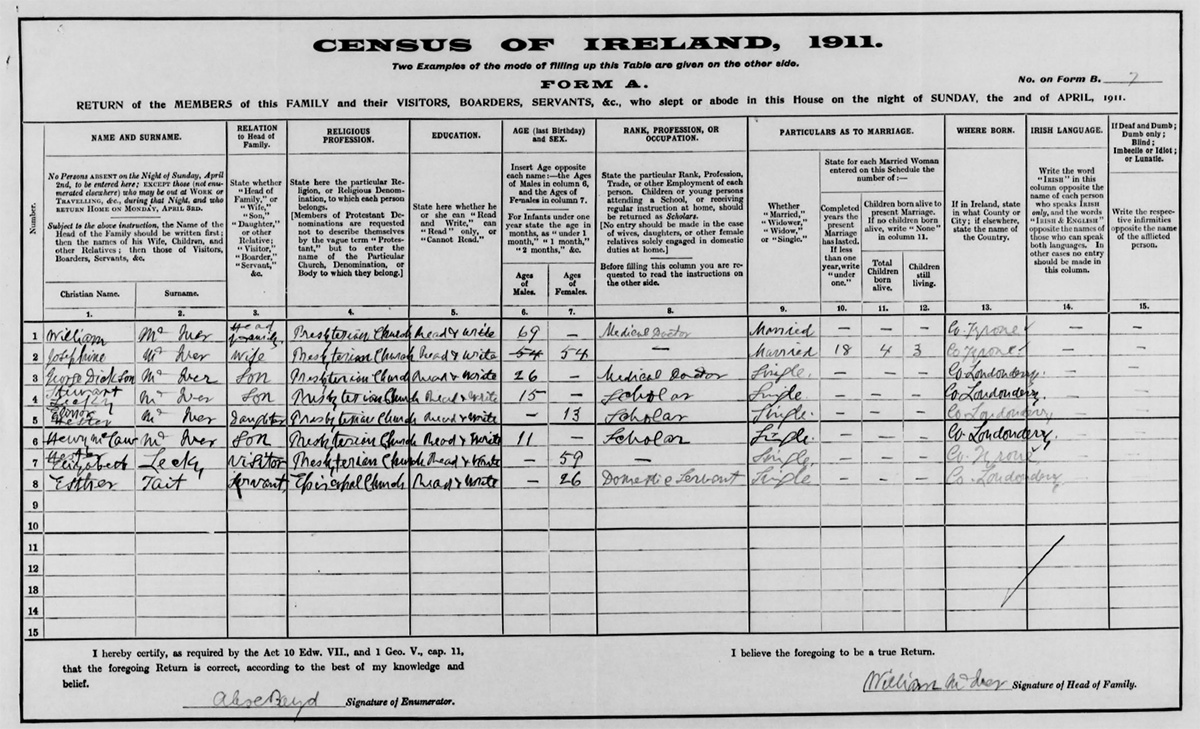 CENSUS OF IRELAND, 1911.
Two Examples of the mode of filling up this Table are given on the other side.
FORM A.
No. on Form B. 7
RETURN of the MEMBERS of this FAMILY and their VISITORS, BOARDERS, SERVANTS, &c., who slept or abode in this House on the night of SUNDAY, the 2nd of APRIL, 1911.
Number.
NAME AND SURNAME.
No Persons ABSENT on the Night of Sunday, April 2nd, to be entered here; EXCEPT those (not enumerated elsewhere) who may be out at WORK or TRAVELLING, &c., during that Night, and who RETURN HOME ON MONDAY, APRIL 3RD.
Subject to the above instruction, the Name of the Head of the Family should be written first; then the names of his Wife, Children, and other Relatives; then those of Visitors, Boarders, Servants, &c.
Christian Name. Surname.
1. 2.
RELATION to Head of Family.
State whether "Head of Family," or "Wife," "Son," "Daughter," or other Relative; "Visitor," "Boarder," "Servant," &c.
3.
RELIGIOUS PROFESSION.
State here the particular Religion, or Religious Denomination, to which each person belongs.
[Members of Protestant Denominations are requested not to describe themselves by the vague term "Protestant," but to enter the name of the Particular Church, Denomination, or Body to which they belong.]
4.
EDUCATION.
State here whether he or she can "Read and Write," can "Read" only, or "Cannot Read."
5.
AGE (last Birthday) and SEX.
Insert Age opposite each name:—the Ages of Males in column 6, and the Ages of Females in column 7.
For Infants under one year state the age in months, as "under 1 month," "1 month," "2 months," &c.
Ages of Males. Ages of Females.
6. 7.
RANK, PROFESSION, OR OCCUPATION.
State the particular Rank, Profession, Trade, or other Employment of each person. Children or young persons attending a School, or receiving regular instruction at home, should be returned as Scholars.
[No entry should be made in the case of wives, daughters, or other female relatives solely engaged in domestic duties at home.]
Before filling this column you are requested to read the instructions on the other side.
8.
PARTICULARS AS TO MARRIAGE.
Whether "Married," "Widower," "Widow," or "Single."
9.
State for each Married Woman entered on this Schedule the number of:—
Completed years the present Marriage has lasted. If less than one year, write "under one."
10.
Children born alive to present Marriage. If no children born alive, write "None" in column 11.
Total Children born alive. Children still living.
11. 12.
WHERE BORN.
If in Ireland, state in what County or City; if elsewhere, state the name of the Country.
13.
IRISH LANGUAGE.
Write the word "IRISH" in this column opposite the name of each person who speaks IRISH only, and the words "IRISH & ENGLISH" opposite the names of those who can speak both languages. In other cases no entry should be made in this column.
14.
If Deaf and Dumb; Dumb only; Blind; Imbecile or Idiot; or Lunatic.
Write the respective infirmities opposite the name of the afflicted person.
15.
1 William Mc Iver Head of Family Presbyterian Church Read & write 69 — Medical Doctor Married — — — Co. Tyrone — —
2 Josephine Mc Iver Wife Presbyterian Church Read & Write 54 54 — Married 18 4 3 Co Tyrone — —
3 George Dickson Mc Iver Son Presbyterian Church Read & Write 26 — Medical Doctor Single — — — Co. Londonderry. —
4 Stewart Mc Iver Son Presbyterian Church Read & Write 15 — Scholar Single — — — Co. Londonderry —
5 Mc Iver Daughter Presbyterian Church Read & Write — 13 Scholar Single. — — — Co Londonderry —
6 Henry McCaw Mc Iver Son Presbyterian Church Read & Write 11 — Scholar Single. — — — Co. Londonderry. —
7 Elizabeth Lecky Visitor Presbyterian Church Read & Write — 59 — Single. — — — Co. Tyrone —
8 Esther Tait Servant Episcopal Church Read & Write — 26 Domestic Servant Single — — — Co. Londonderry —
9
10
11
12
13
14
15
I hereby certify, as required by the Act 10 Edw. VII., and 1 Geo. V., cap. 11, that the foregoing Return is correct, according to the best of my knowledge and belief.
Signature of Enumerator.
I believe the foregoing to be a true Return.
William Mc Iver Signature of Head of Family.